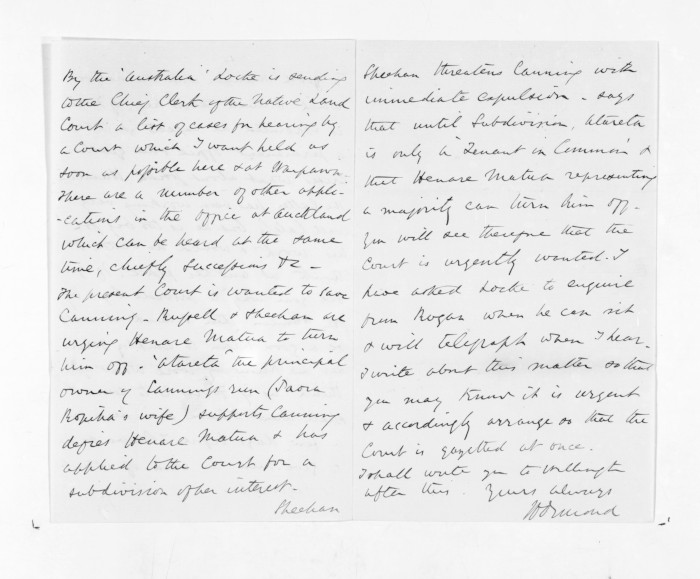 By the "Australia" Locke is sending
to the Chief Clerk of the Native Land
Court a list of cases for hearing by
a Court which I want held as
soon as possible here & at Waipawa.
There are a number of other appli-
-cations in the office at Auckland
which can be heard at the same
time, chiefly successions &c -
The present Court is wanted to save
Canning - Russell & Sheehan are
urging Henare Matua to turn
him off. "Atareta" the principal
owner of Cannings run (
wife) supports Canning
defies Henare Matua & has
applied to the Court for a
subdivision of her interest.
Sheehan
Sheehan threatens Canning with
immediate expulsion - says
that until Subdivision, Atareta
is only a "Tenant in Common" &
that Henare Matua representing
a majority can turn him off -
You will see therefore that the
Court is urgently wanted. I
have asked Locke to enquire
from Rogan when he can sit
& will telegraph when I hear.
I write about this matter so that
you may know it is urgent
& accordingly arrange so that the
Court is gazetted at once.
I shall write you to Wellington
after this. Yours always
JD Ormond